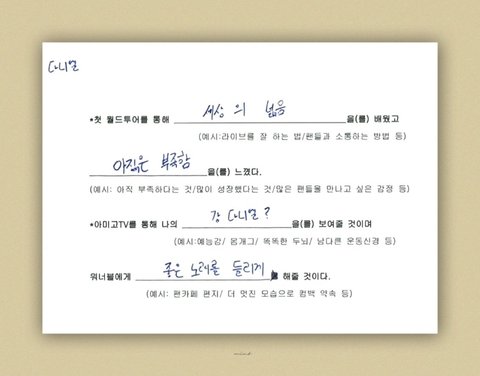 다니엘
*첫 월드투어를 통해 세상의 넓음 을(를) 배웠고
(예시:라이브를 잘 하는 법/팬들과 소통하는 방법 등)
아직은 부족함 을(를) 느꼈다.
(예시: 아직 부족하다는 것/많이 성장했다는 것/많은 팬들을 만나고 싶은 감정 등)
*아미고TV를 통해 나의 강다니엘? 을(를) 보여줄 것이며
(예시:예능감/ 몸개그/ 똑똑한 두뇌/ 남다른 운동신경 등)
워너블에게 좋은 노래를 들리게 해줄 것이다.
(예시: 팬카페 편지/ 더 멋진 모습으로 컴백 약속 등)